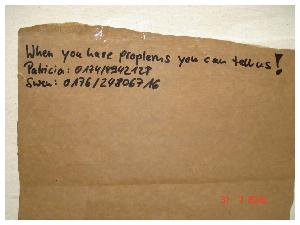 When you have proplems you can tell us!
Patricia: 0174/4942128
Swen: 0176/24806716